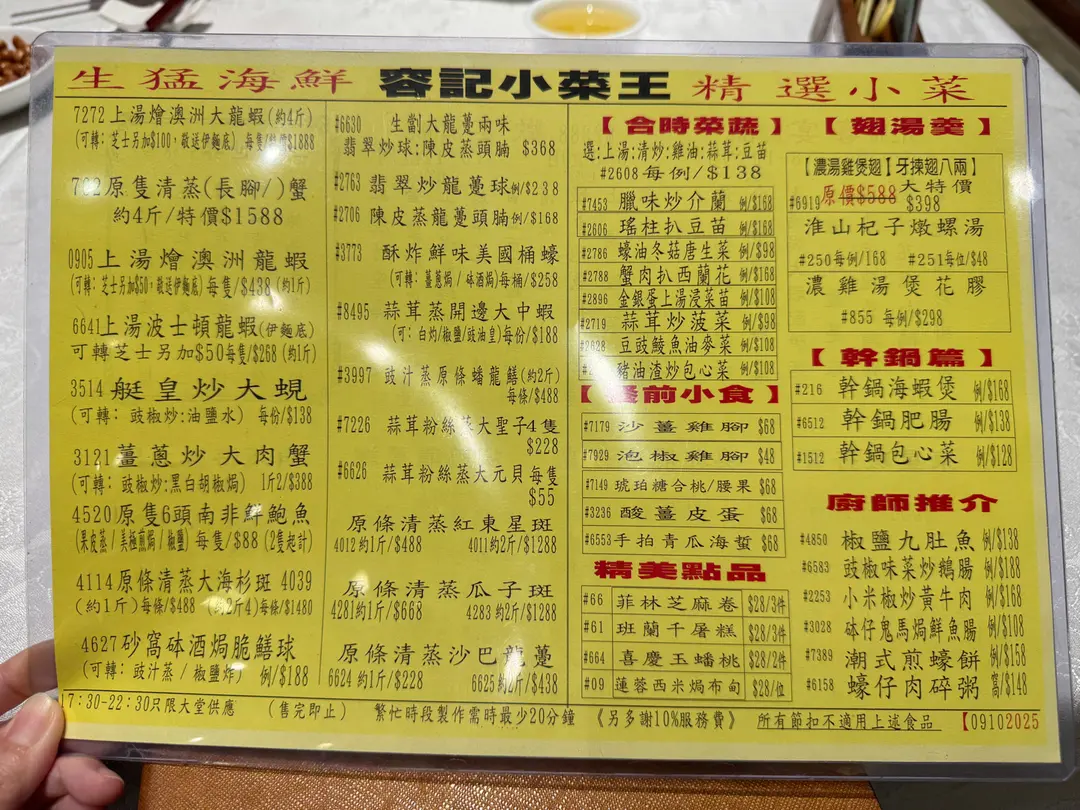 生猛海鮮 容記小菜王 精選小菜
7272上湯燴澳洲大龍蝦(約4斤)
(可轉:芝士另加$100,敬送伊麵底) 每隻/特價$1888
原隻清蒸(長腳/)蟹
約4斤/特價$1588
0905上湯燴澳洲龍蝦
(可轉:芝士另加$50,敬送伊麵底)每隻/$438(約1斤)
6641上湯波士頓龍蝦(伊麵底)
可轉芝士另加$50每隻/$268(約1斤)
3514艇皇炒大蜆
(可轉:豉椒炒:油鹽水) 每份/$138
3121薑蔥炒大肉蟹
(可轉:豉椒炒:黑白胡椒焗) 1斤2/$388
4520原隻6頭南非鮮鮑魚
(果皮蒸/美極煎焗/椒鹽)每隻/$88(2隻起計)
4114原條清蒸大海杉斑4039
(約1斤)每條/$488(約2斤4)每條/$1480
4627砂窩砵酒焗脆鱔球
(可轉:豉汁蒸/椒鹽炸) 例/$188
#6630 生劏大龍躉兩味
翡翠炒球:陳皮蒸頭腩 $368
#2763 翡翠炒龍躉球例/$238
#2706 陳皮蒸龍躉頭腩例/$168
#3773 酥炸鮮味美國桶蠔
(可轉:薑蔥焗/砵酒焗)每桶/$258
#8495 蒜茸蒸開邊大中蝦
(可:白灼/椒鹽/豉油皇)每份/$188
#3997 豉汁蒸原條蟠龍鱔(約2斤)
每條/$488
#7226 蒜茸粉絲蒸大聖子4隻
$228
#6626 蒜茸粉絲蒸大元貝每隻
$55
原條清蒸紅東星斑
4012約1斤/$488 4011約2斤/$1288
原條清蒸瓜子斑
4281約1斤/$668 4283約2斤/$1288
原條清蒸沙巴龍躉
6624約1斤/$228 6625約2斤/$438
【合時菜蔬】
選:上湯:清炒:雞油:蒜茸:豆苗
#2608每例/$138
#7453 臘味炒介蘭 例/$168
#2606 瑤柱扒豆苗 例/$168
#2786 蠔油冬菇唐生菜 例/$98
#2788 蟹肉扒西蘭花 例/$168
#2896 金銀蛋上湯浸菜苗 例/$108
#2719 蒜茸炒菠菜 例/$98
豆豉鯪魚油麥菜 例/$108
豬油渣炒包心菜 例/$108
前小食】
#7179 沙薑雞腳 $68
#7929 泡椒雞腳 $48
#7149 琥珀糖合桃/腰果 $68
#3236 酸薑皮蛋 $68
#6553手拍青瓜海蜇 $68
精美點品
#66 菲林芝麻卷 $28/3件
#61 班蘭千層糕 $28/3件
#664 喜慶玉蟠桃 $28/2件
#09 蓮蓉西米焗布甸 $28/位
【翅湯羹】
【濃湯雞煲翅】【牙揀翅八兩】
#6919原價$588大特價
$398
淮山杞子燉螺湯
#250每例/168 #251每位/$48
濃雞湯煲花膠
#855 每例/$298
【幹鍋篇】
#216 幹鍋海蝦煲 例/$168
#6512 幹鍋肥腸 例/$138
#1512 幹鍋包心菜 例/$128
廚師推介
#4850 椒鹽九肚魚 例/$138
#6583 豉椒味菜炒鵝腸 例/$188
#2253 小米椒炒黃牛肉 例/$168
#3028 砵仔鬼馬焗鮮魚腸 例/$108
#7389 潮式煎蠔餅 例/$158
#6158 蠔仔肉碎粥 窩/$148
17:30-22:30只限大堂供應 (售完即止) 繁忙時段製作需時最少20分鐘 《另多謝10%服務費》 所有節扣不適用上述食品 【09102025